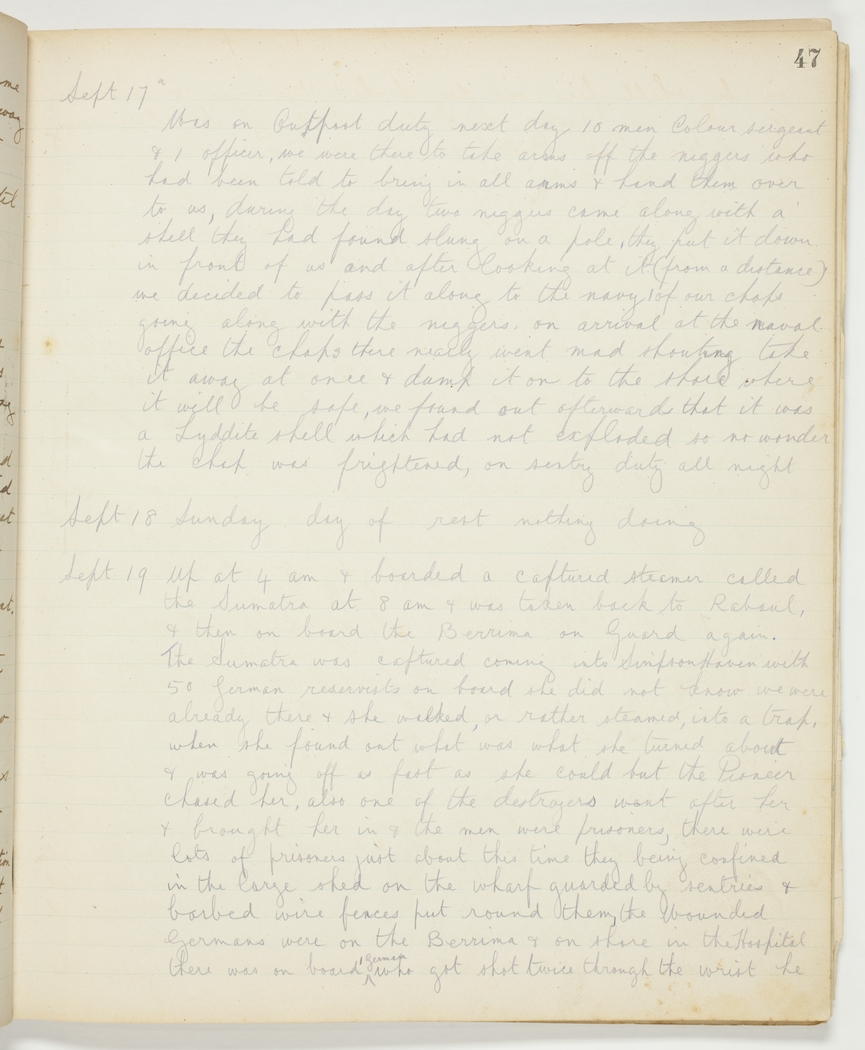 47
Sept 17th
Was on Outpost duty next day 10 men Colour sergeant
& 1 officer, we were there to take arms off the niggers who
had been told to bring in all arms & hand them over
to us, during the day two niggers came along with a
shell they had found slung on a pole, they put it down
in front of us and after looking at it (from a distance)
we decided to pass it along to the navy 1 of our chaps
going along with the niggers. on arrival at the naval
office the chaps there nearly went mad shouting take
it away at once & dump it on to the shore where
it will be safe, we found out afterwards that it was
a Lyddite shell which had not exploded so no wonder
the chap was frightened, on sentry duty all night
Sept 18 Sunday day of rest nothing doing
Sept 19 Up at 4 am & boarded a captured steamer called
the Sumatra at 8 am & was taken back to Rabaul,
& then on board the Berrima on Guard again.
The Sumatra was captured coming into Simpson Haven with
50 German reservists on board she did not know we were
already there & she walked, or rather steamed, into a trap.
when she found out what was what she turned about
& was going off as fast as she could but the Pioneer
chased her, also one of the destroyers went after her
& brought her in & the men were prisoners, there were
lots of prisoners just about this time they being confined
in the large shed on the wharf guarded by sentries &
barbed wire fences put round them, the Wounded
Germans were on the Berrima & on shore in the Hospital
there was on board 1 German who got shot twice through the wrist he